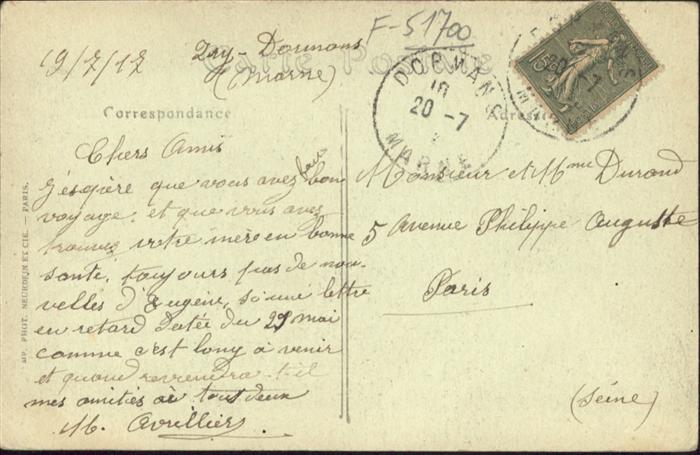 F-51700
19/7/17
Try-Dormans
(Marne)
Carte Postale
Correspondance
Adresse
DORMANS
18
20 -7
MARNE
15
Chers Amis
J'espère que vous avez fait bon
voyage, et que vous avez
trouvé votre mère en bonne
santé, toujours pas de nou-
velles d'Eugène, si une lettre
en retard Datée du 29 mai
comme c'est long à venir
et quand reviendra-t-il
mes amitiés à tous deux
M. Avrillier
Monsieur et Mme Durand
5 Avenue Philippe Auguste
Paris
(Seine)
ND. PHOT. NEURDEIN ET CIE. — PARIS.